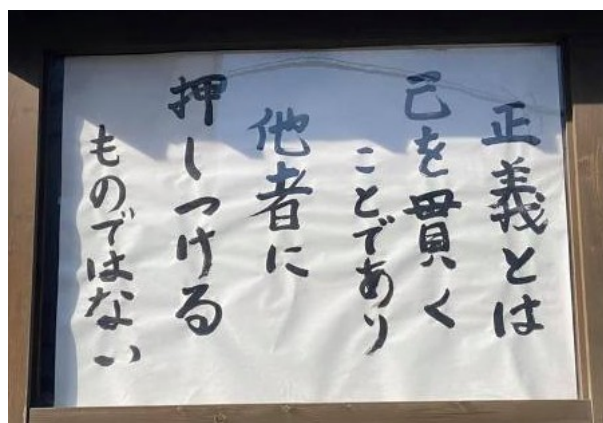 正義とは
己を貫く
ことであり
他者に
押しつける
ものではない